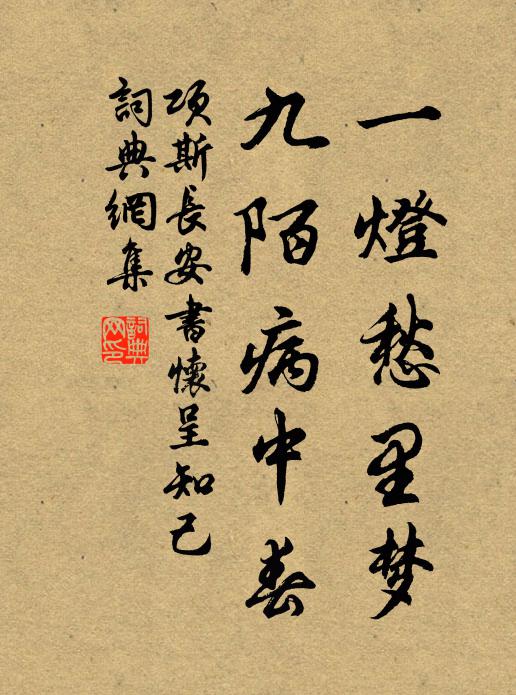 一燈愁里梦
九陌病中春
项斯長安書懷呈知己
詞典網集
詞典網印